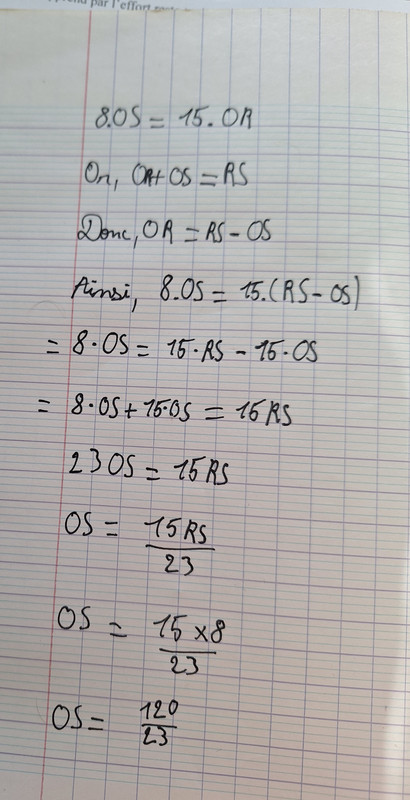 par l'effort
8.OS = 15.OR
Or, OR+ OS = RS
Donc, OR = RS - OS
Ainsi, 8.OS = 15.(RS - OS)
= 8.OS = 15.RS - 15.OS
= 8.OS + 15.OS = 15RS
23OS = 15RS
OS = 15RS / 23
OS = 15 x 8 / 23
OS = 120 / 23